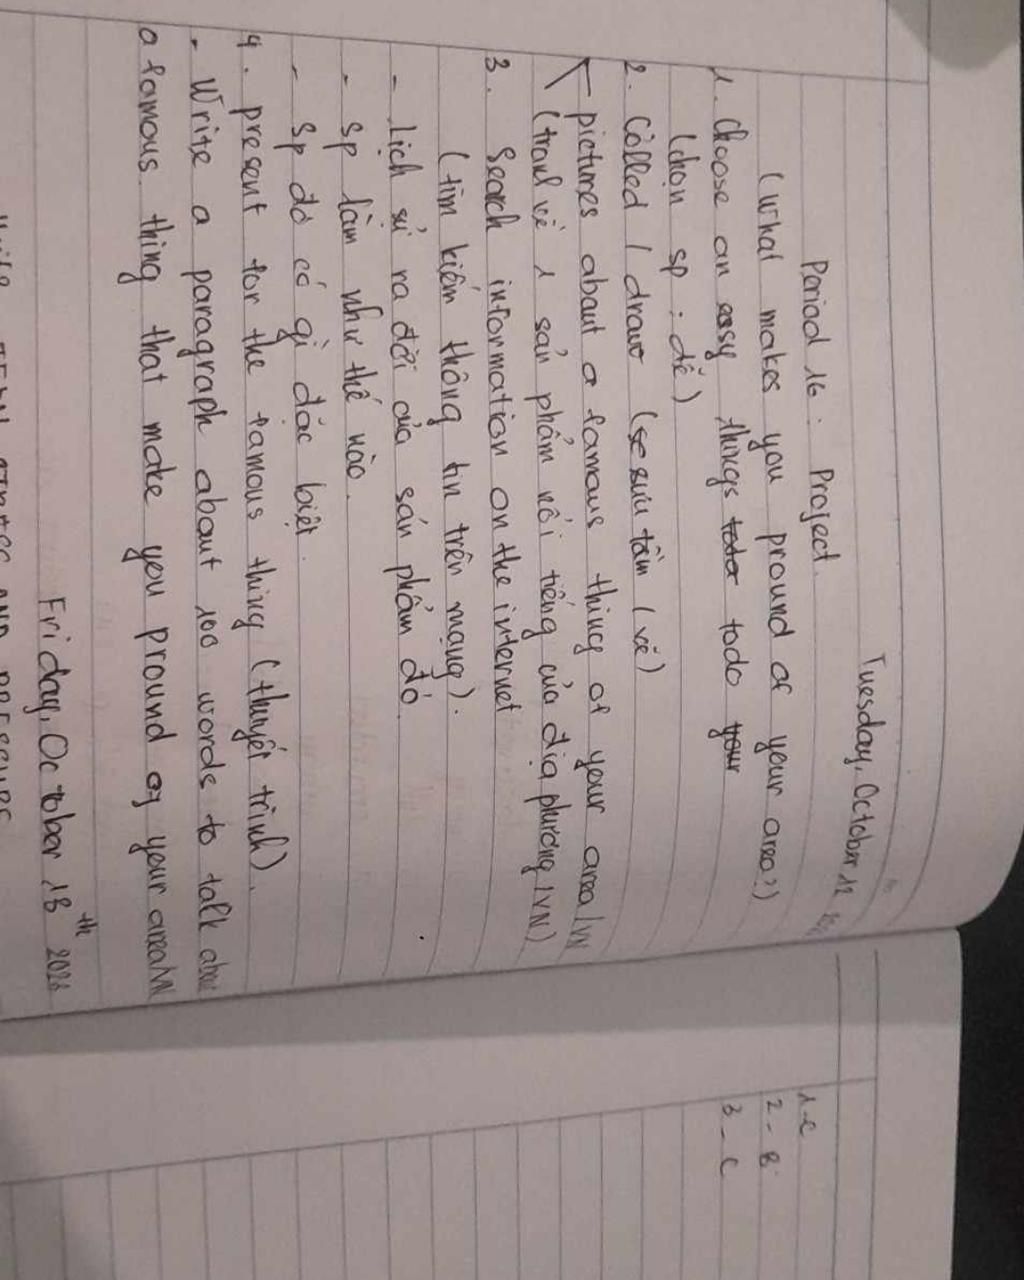 Tuesday, October 12
Period 16 : Project.
(What makes you pround of your area?)
1. Choose an easy things todo
(chọn sp : dễ)
2. Colled / draw (sưu tâm / vẽ)
pictures about a famous thing of your area / VN
(tranh về 1 sản phẩm nổi tiếng của địa phương / VN)
3. Search information on the internet
(tìm kiếm thông tin trên mạng).
- Lịch sử ra đời của sản phẩm đó.
- Sp làm như thế nào.
- Sp đó có gì đặc biệt.
4. present for the famous thing (thuyết trình).
- Write a paragraph about 100 words to talk about
a famous thing that make you pround of your area/VN
Friday, October 13th
TEEN STRESS AND PRESSURE
1-C
2 - B
3 - C